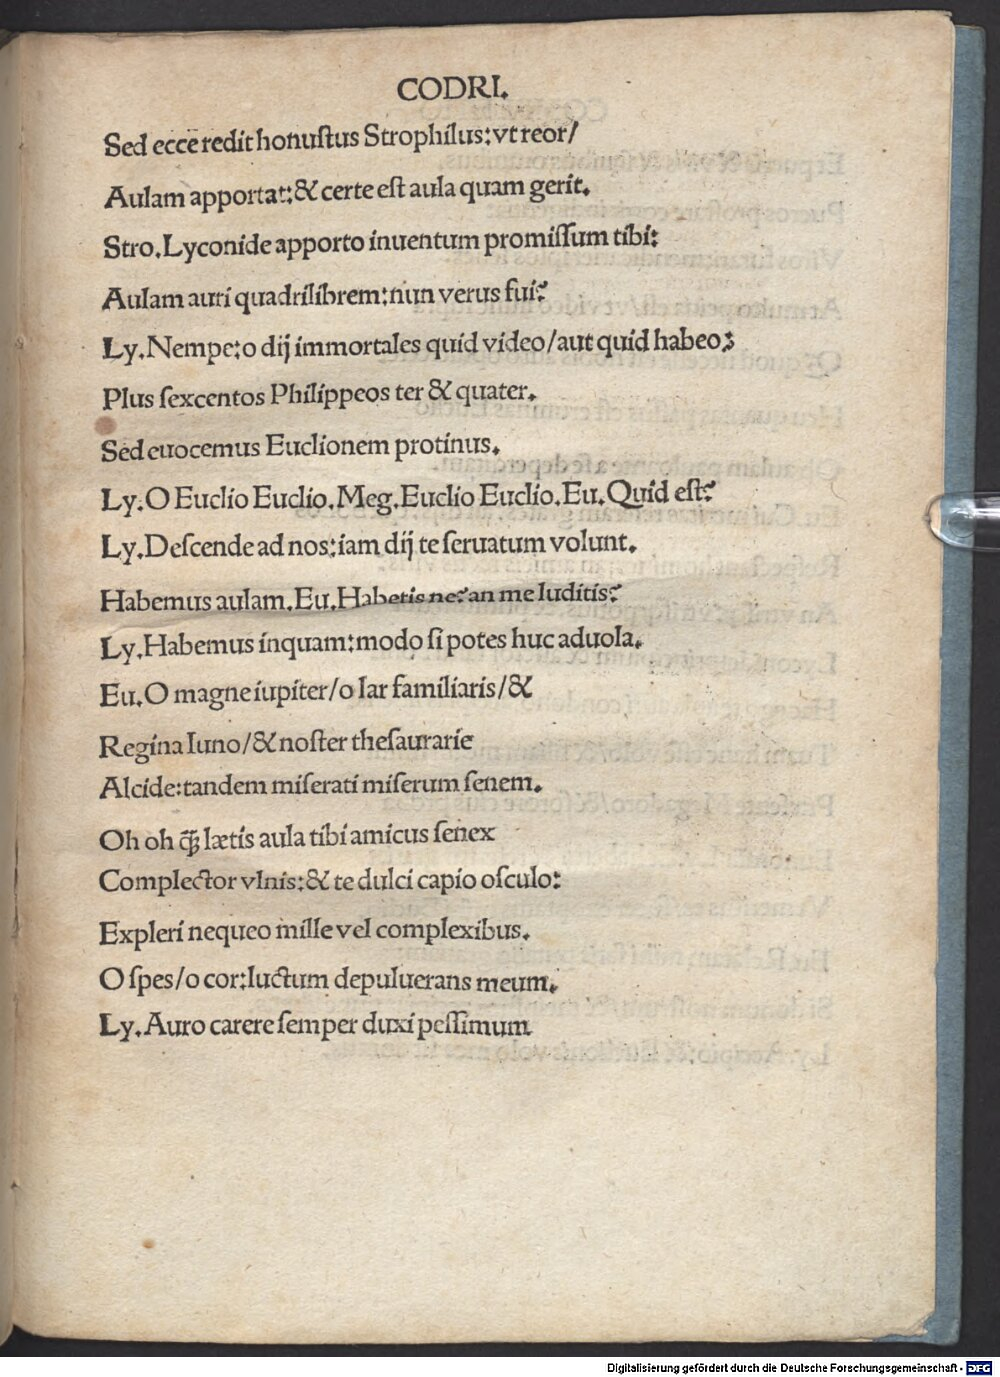 CODRI.
Sed ecce redit honuſtus Strophilus: vt reor/
Aulam apportat: & certe eſt aula quam gerit.
Stro. Lyconide apporto inuentum promiſſum tibi:
Aulam auri quadrilibrem: nun verus fui?
Ly. Nempe: o dij immortales quid video/aut quid habeo?
Plus ſexcentos Philippeos ter & quater.
Sed euocemus Euclionem protinus.
Ly. O Euclio Euclio. Meg. Euclio Euclio. Eu. Quid eſt?
Ly. Deſcende ad nos: iam dij te ſeruatum volunt.
Habemus aulam. Eu. Habetis ne? an me luditis?
Ly. Habemus inquam: modo ſi potes huc aduola.
Eu. O magne iupiter/o lar familiaris/&
Regina Iuno/& noſter theſaurarie
Alcide: tandem miſerati miſerum ſenem.
Oh oh ꝙ̃ lætis aula tibi amicus ſenex
Complector vlnis: & te dulci capio oſculo:
Expleri nequeo mille vel complexibus.
O ſpes/o cor: luctum depuluerans meum.
Ly. Auro carere ſemper duxi peſſimum
Digitalisierung gefördert durch die Deutsche Forschungsgemeinschaft - DFG